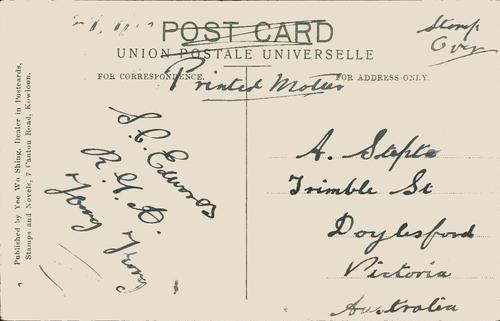 POST CARD
UNION POSTALE UNIVERSELLE
Stamp
Over
FOR CORRESPONDENCE.
FOR ADDRESS ONLY.
Printed Matter
Published by Yee Wo Shing, Dealer in Postcards,
Stamps and Novels, 7 Canton Road, Kowloon.
S. C. Edwards
R. G. A.
Hong Kong
A. Stepto
Trimble St
Doylesford
Victoria
Australia